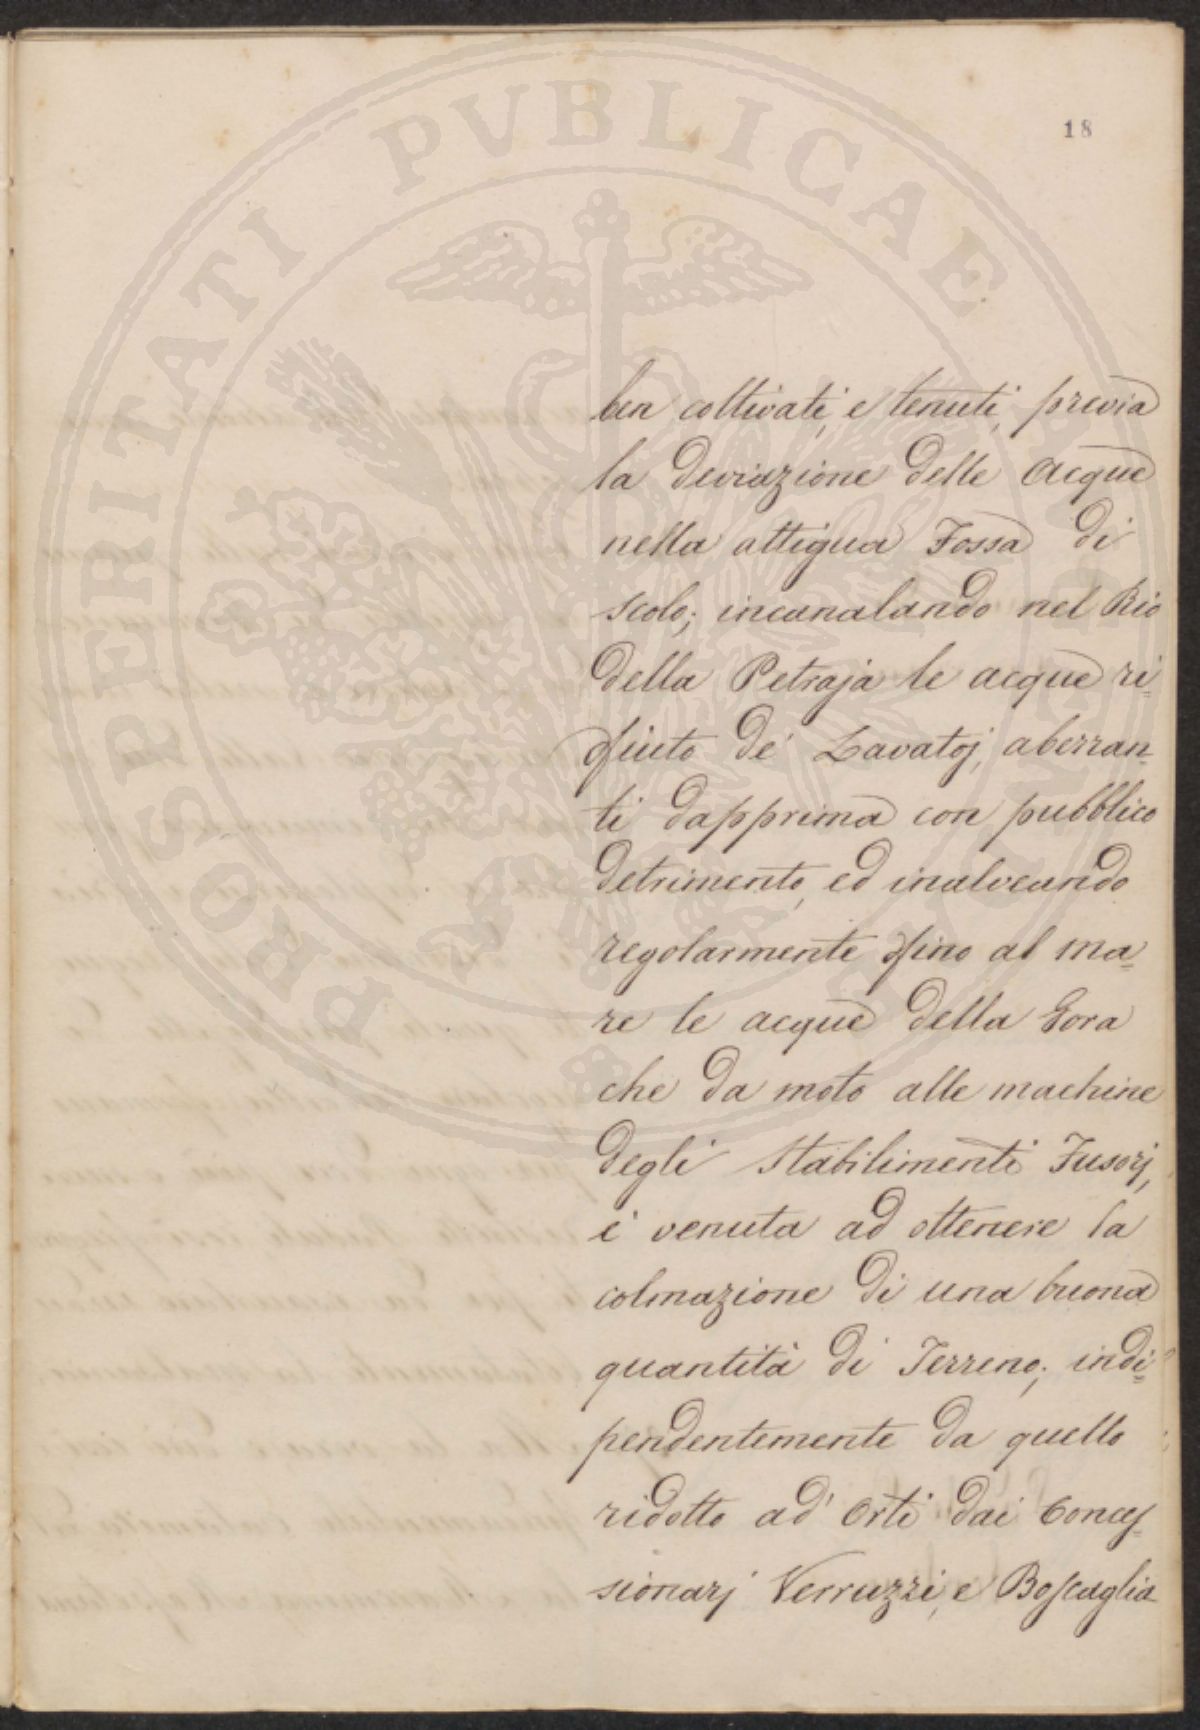 PROSPERITATI PVBLICAE
18
ben coltivati, e tenuti, previa
la deviazione delle acque
nella attigua Fossa di
scolo; incanalando nel Rio
della Petraja le acque ri=
fiuto de' Lavatoj, aberran=
ti dapprima con pubblico
detrimento, ed inalveando
regolarmente fino al ma=
re le acque della Gora
che da moto alle machine
degli Stabilimenti Fusorj,
è venuta ad ottenere la
colmazione di una buona
quantità di Terreno; indi=
pendentemente da quello
ridotto ad Orti dai Conces=
sionarj Verruzzi, e Boscaglia